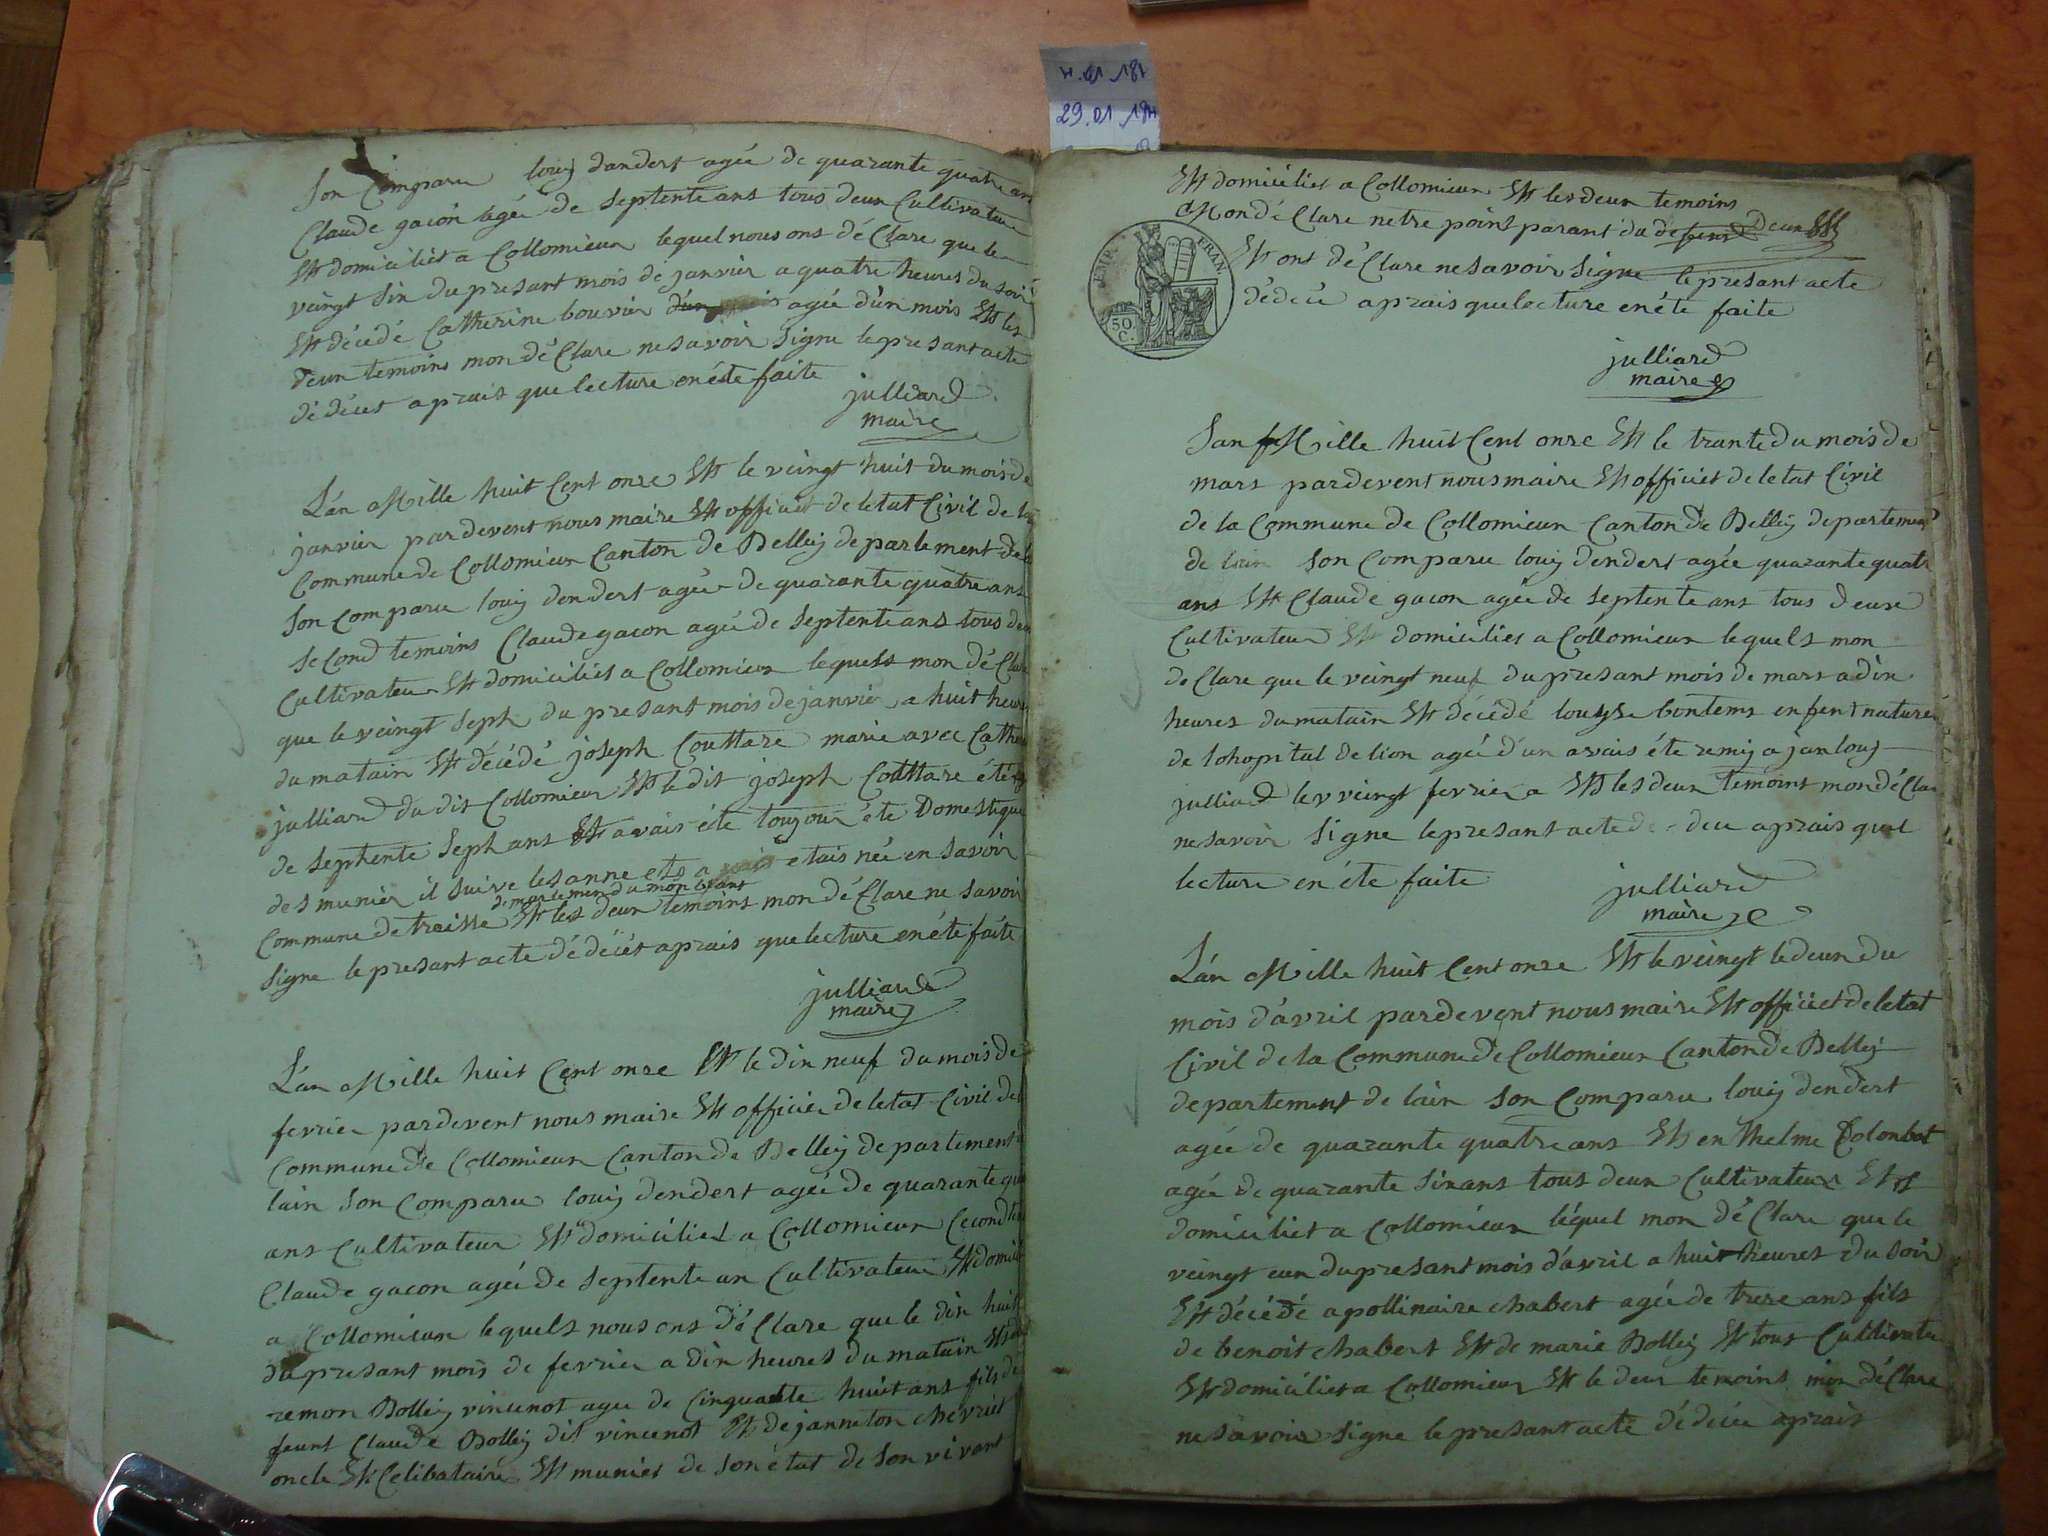 H.01.181
29.01.1811
son Comparu louis dandert agée de quarante quatre ans
Claude gacon agée de septente ans tous deux Cultivateur
Ett domiciliés a Collomieux lequel nous ons dé Clare que le
veingt six du presant mois de janvier a quatre heures du soir
Ett décédé Catherine bouvier agée d'un mois Ett les
deux temoins mon dé Clare ne savoir signe le presant acte
dédéces aprais que lecture en éte faite
julliard
maire
L'an Mille huit Cent onze Ett le veingt huit du mois de
janvier pardevent nous maire Ett officiét de letat Civil de la
Commune de Collomieux Canton de Belley departement de
son Comparu louis dendert agée de quarante quatre ans
se Cond temoins Claude gacon agée de septente ans tous deux
Cultivateur Ett domiciliés a Collomieux lequels mon dé Clare
que le veingt seph du presant mois de janvier a huit heures
du matain Ett décédé joseph Couttare marie avec Cathe
julliard du dit Collomieux Ett le dit joseph Couttare été age
de septente seph ans Ett avais éte toujour éte Domestique
des munier il suive les anne ets a etais née en savoir
departement du mon blant
Commune de traisse Ett les deux temoins mon dé Clare ne savoir
signe le presant acte dédécés aprais que lecture en éte faite
julliard
maire
L'an Mille huit Cent onze Ett le dix neuf du mois de
fevrier pardevent nous maire Ett officiér de letat Civil de
Commune de Collomieux Canton de Belley departement
lain son Comparu louis dendert agée de quarante qua
ans Cultivateur Ett domicilieé a Collomieux Cecond tem
Claude gacon agée de septente an Cultivateur Ett domicil
a Collomieux lequels nous ons dé Clare que le dix huit
du presant mois de fevrier a dix heures du matain Ett
remon Bolley vincenot agee de Cinquante huit ans fils de
feunt Claude Bolley dit vincenot Et de janneton chevriét
oncle Ett Celibataire Ett muniés de son état de son vivant
Ett domiciliés a Collomieux Ett les deux temoins
Mon dé Clare netre point parant du defunt deux
EMP. FRAN.
50. C.
Ett ont dé Clare ne savoir signe le presant acte
dédécé aprais que lecture en éte faite
julliard
maire
Lan Mille huit Cent onze Ett le trante du mois de
mars pardevent nous maire Ett officiét de letat Civil
de la Commune de Collomieux Canton de Belley departement
de lain son Comparu louis dendert agée quarante quatr
ans Ett Claude gacon agée de septente ans tous deux
Cultivateur Ett domiciliés a Collomieux lequels mon
dé Clare que le veingt neuf du presant mois de mars a dix
heures du matain Ett décédé louyse bontems enfent nature
de lohopital de lion agée d'un avais éte remis a jan louis
julliard lev veingt fevrier a Ett les deux temoins mon dé Cla
ne savoir signe le presant acte de dece aprais quel
lecture en éte faite
julliard
maire
L'an Mille huit Cent onze Ett le veingt le deux du
mois d'avril pardevent nous maire Ett officiét de letat
Civil de la Commune de Collomieux Canton de Belley
departement de lain son Comparu louis dendert
agée de quarante quatre ans Ett enthelme Colonbet
agée de quarante six ans tous deux Cultivateur Ett
domiciliét a Collomieux léquel mon dé Clare que le
veingt eun du presant mois d'avril a huit heures du soir
Ett décédé apollinaire chabert agée de treze ans fils
de benoit chabert Ett de marie Bolley Ett tous Cultivateu
Ett domiciliés a Collomieux Ett le deux temoins mon dé Clare
ne savoir signe le presant acte dédéces aprais